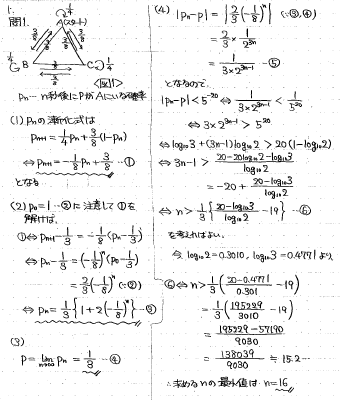 1.
問1.
1/4
A(スタート)
3/8 3/8 3/8 3/8
1/4 B C 1/4
3/8
3/8
<図1>
Pn … n秒後にPがAにいる確率
(1) Pnの漸化式は
Pn+1 = 1/4 Pn + 3/8 (1-Pn)
⇔ Pn+1 = -1/8 Pn + 3/8 …①
となる
(2) P0=1 …②に注意して①を
解けば、
①⇔ Pn+1 - 1/3 = -1/8 (Pn - 1/3)
⇔ Pn - 1/3 = (-1/8)^n (P0 - 1/3)
= 2/3 (-1/8)^n (∵②)
⇔ Pn = 1/3 {1+2(-1/8)^n} …③
(3)
P = lim n→∞ Pn = 1/3 …④
(4) |Pn-P| = |2/3 (-1/8)^n| (∵③,④)
= 2/3 × 1/2^3n
= 1/(3×2^(3n-1)) …⑤
となるので、
|Pn-P| < 5^-20 ⇔ 1/(3×2^(3n-1)) < 1/5^20
⇔ 3×2^(3n-1) > 5^20
⇔ log10 3 + (3n-1) log10 2 > 20(1-log10 2)
⇔ 3n-1 > (20-20log10 2-log10 3)/log10 2
= -20 + (20-log10 3)/log10 2
⇔ n > 1/3 {(20-log10 3)/log10 2 - 19} …⑥
を考えればよい。
今、log10 2=0.3010, log10 3=0.4771 より
⑥⇔ n > 1/3 ((20-0.4771)/0.301 - 19)
= 1/3 (195229/3010 - 19)
= (195229-57190)/9030
= 138039/9030 ≒ 15.2…
∴求めるnの最小値は n=16